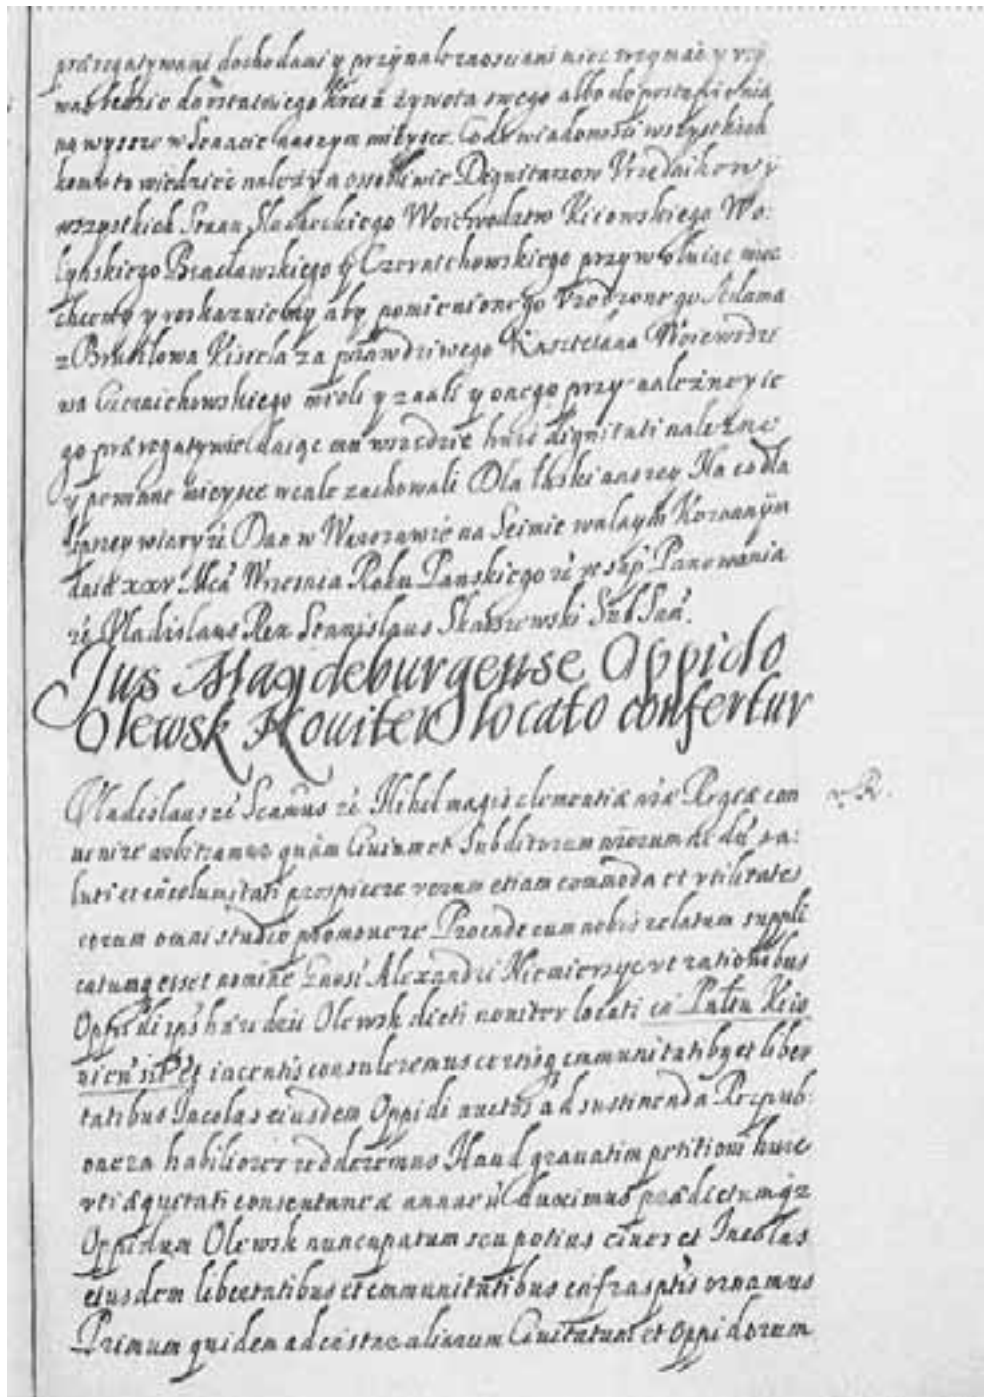 prærogatywami dochodami y przynależnosciami miec trzymać y vży
wać będzie do ostatniego kresu żywota swego albo do postąpienia
na wyższe w Senacie naszym mieysce Co do wiadomości wszystkich
komu to wiedzieć należy a osobliwie Dignitarzow Vrzędnikow y
wszystkich Stanu Slacheckiego Woiewodztw Kiiowskiego Wo:
łynskiego Bracławskiego y Czernichowskiego przywodząc miec
chcemy y roskazuiemy aby pomienionego Vrodzonego Adama
z Brusiłowa Kisiela za prawdziwego Kasztelana Woiewodz
wa Czernichowskiego mieli y znali y onego przy należney ie
go prærogatywie daiąc mu wszędzie huic dignitati należne
y powinne mieysce wcale zachowali Dla łaski naszey Na co dla
lepszey wiary ze Dan w Warszawie na Seimie walnym Koronnym
dnia XXV Mca Wrzesnia Roku Panskiego ze ut sup Panowania
ze Vladislaus Rex Stanislaus Skarszewski
Jus Magdeburgense Oppido
Olewsk Noviter locato confertur
Vladislaus ze Scamus ze Nihil magis clementiæ nræ Regiæ con
uenire arbitramur quam Ciuium et Subditorum nrorum sa:
luti et incolumitati prospicere verum etiam commoda et vtilitates
eorum omni studio promouere Proinde cum nobis relatum suppli
catumq esset nomine Gnosi Alexandri Niemierzyc vt rationibus
Oppidi ipsi hæredis Olewsk dicti nouiter locati in Pnlatu Kiio
uien iacentis consuleremus certisq immunitatibus et liber
tatibus Incolas eiusdem Oppidi auctos ad sustinenda Reipub:
onera habiliores redderemus Haud grauatim petitioni huic
vti æquitati consentaneæ annuere duximus prædictumq
Oppidum Olewsk nuncupatum seu potius ciues et Incolas
eiusdem libertatibus et immunitatibus infrascptis ornamus
Primum quidem ad instar aliarum Ciuitatum et Oppidorum